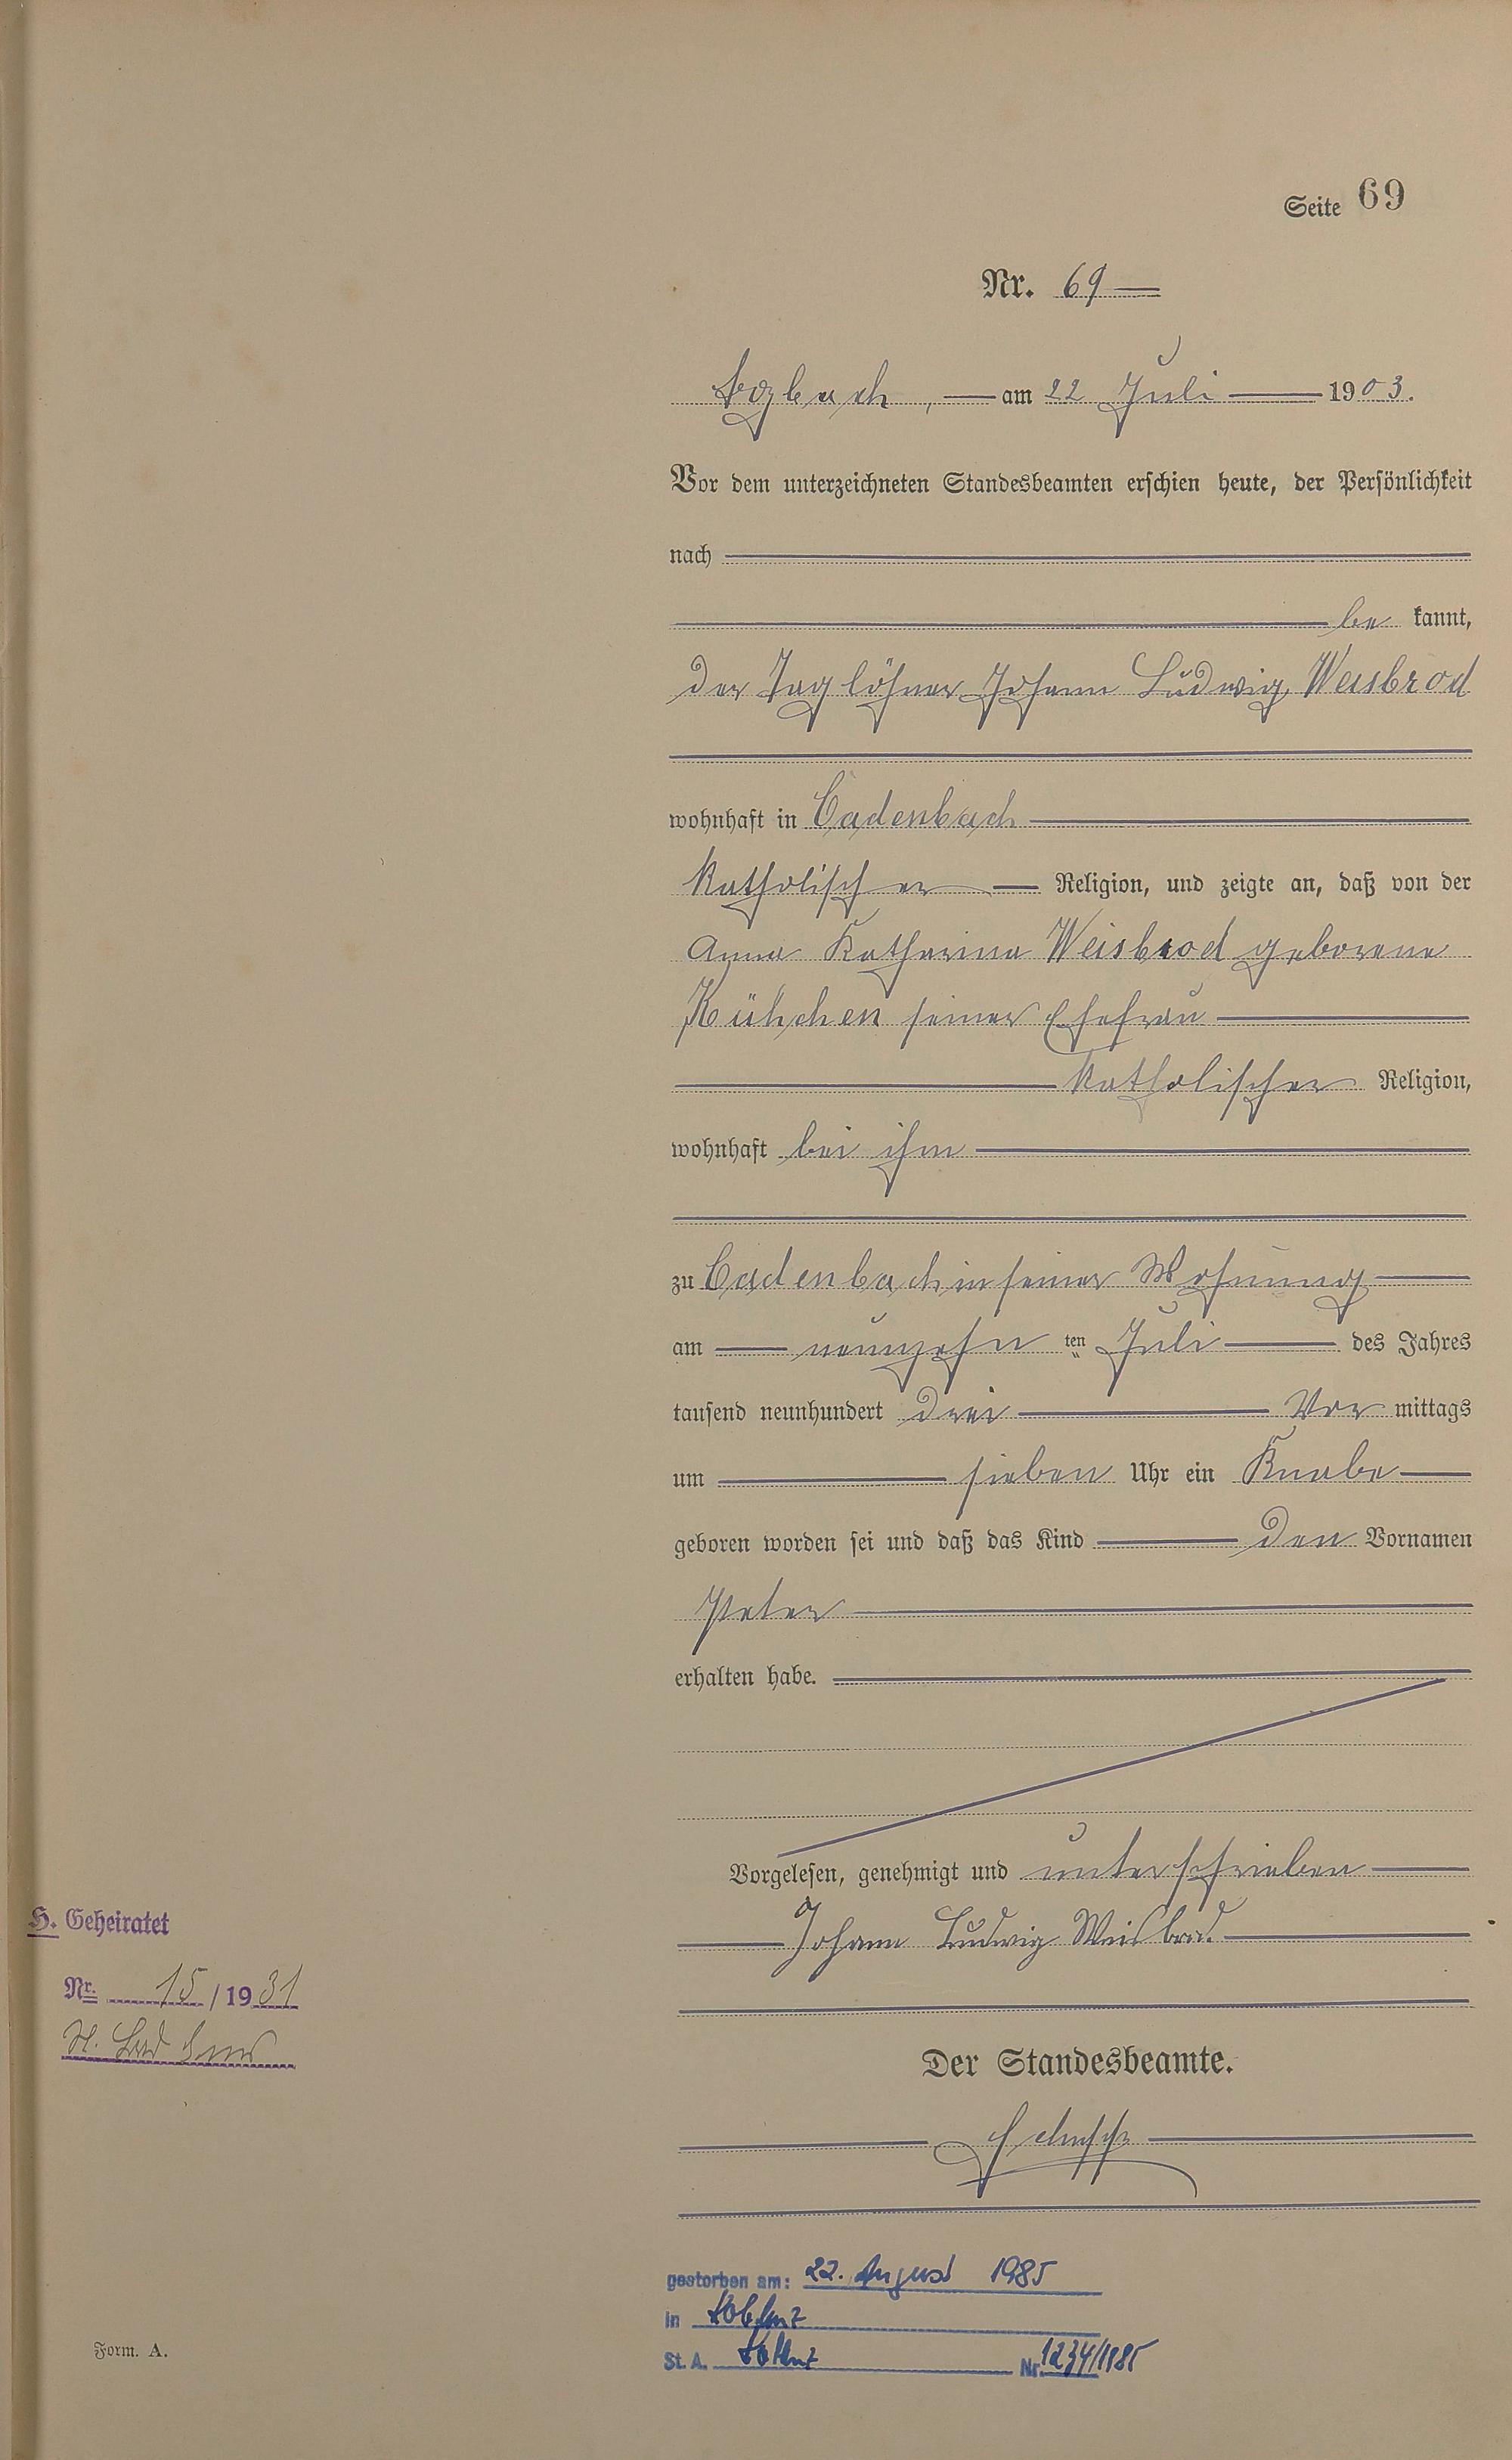 Seite 69
Nr. 69
Arzbach, am 22 Juli 1903.
Vor dem unterzeichneten Standesbeamten erschien heute, der Persönlichkeit
nach
be kannt,
der Taglöhner Johann Ludwig Weisbrod
wohnhaft in Cadenbach
katholischer Religion, und zeigte an, daß von der
Anna Katharina Weisbrod geborene
Kühchen seiner Ehefrau
katholischer Religion,
wohnhaft bei ihm
zu Cadenbach in seiner Wohnung
am neunzehn ten Juli des Jahres
tausend neunhundert drei Vor mittags
um sieben Uhr ein Knabe
geboren worden sei und daß das Kind den Vornamen
Peter
erhalten habe.
Vorgelesen, genehmigt und unterschrieben
Johann Ludwig Weisbrod.
H. Geheiratet
Nr. 15/1931
St. Bad Ems
Der Standesbeamte.
gestorben am: 22. August 1985
in Koblenz
St. A. Koblenz Nr. 1234/1985
Form. A.